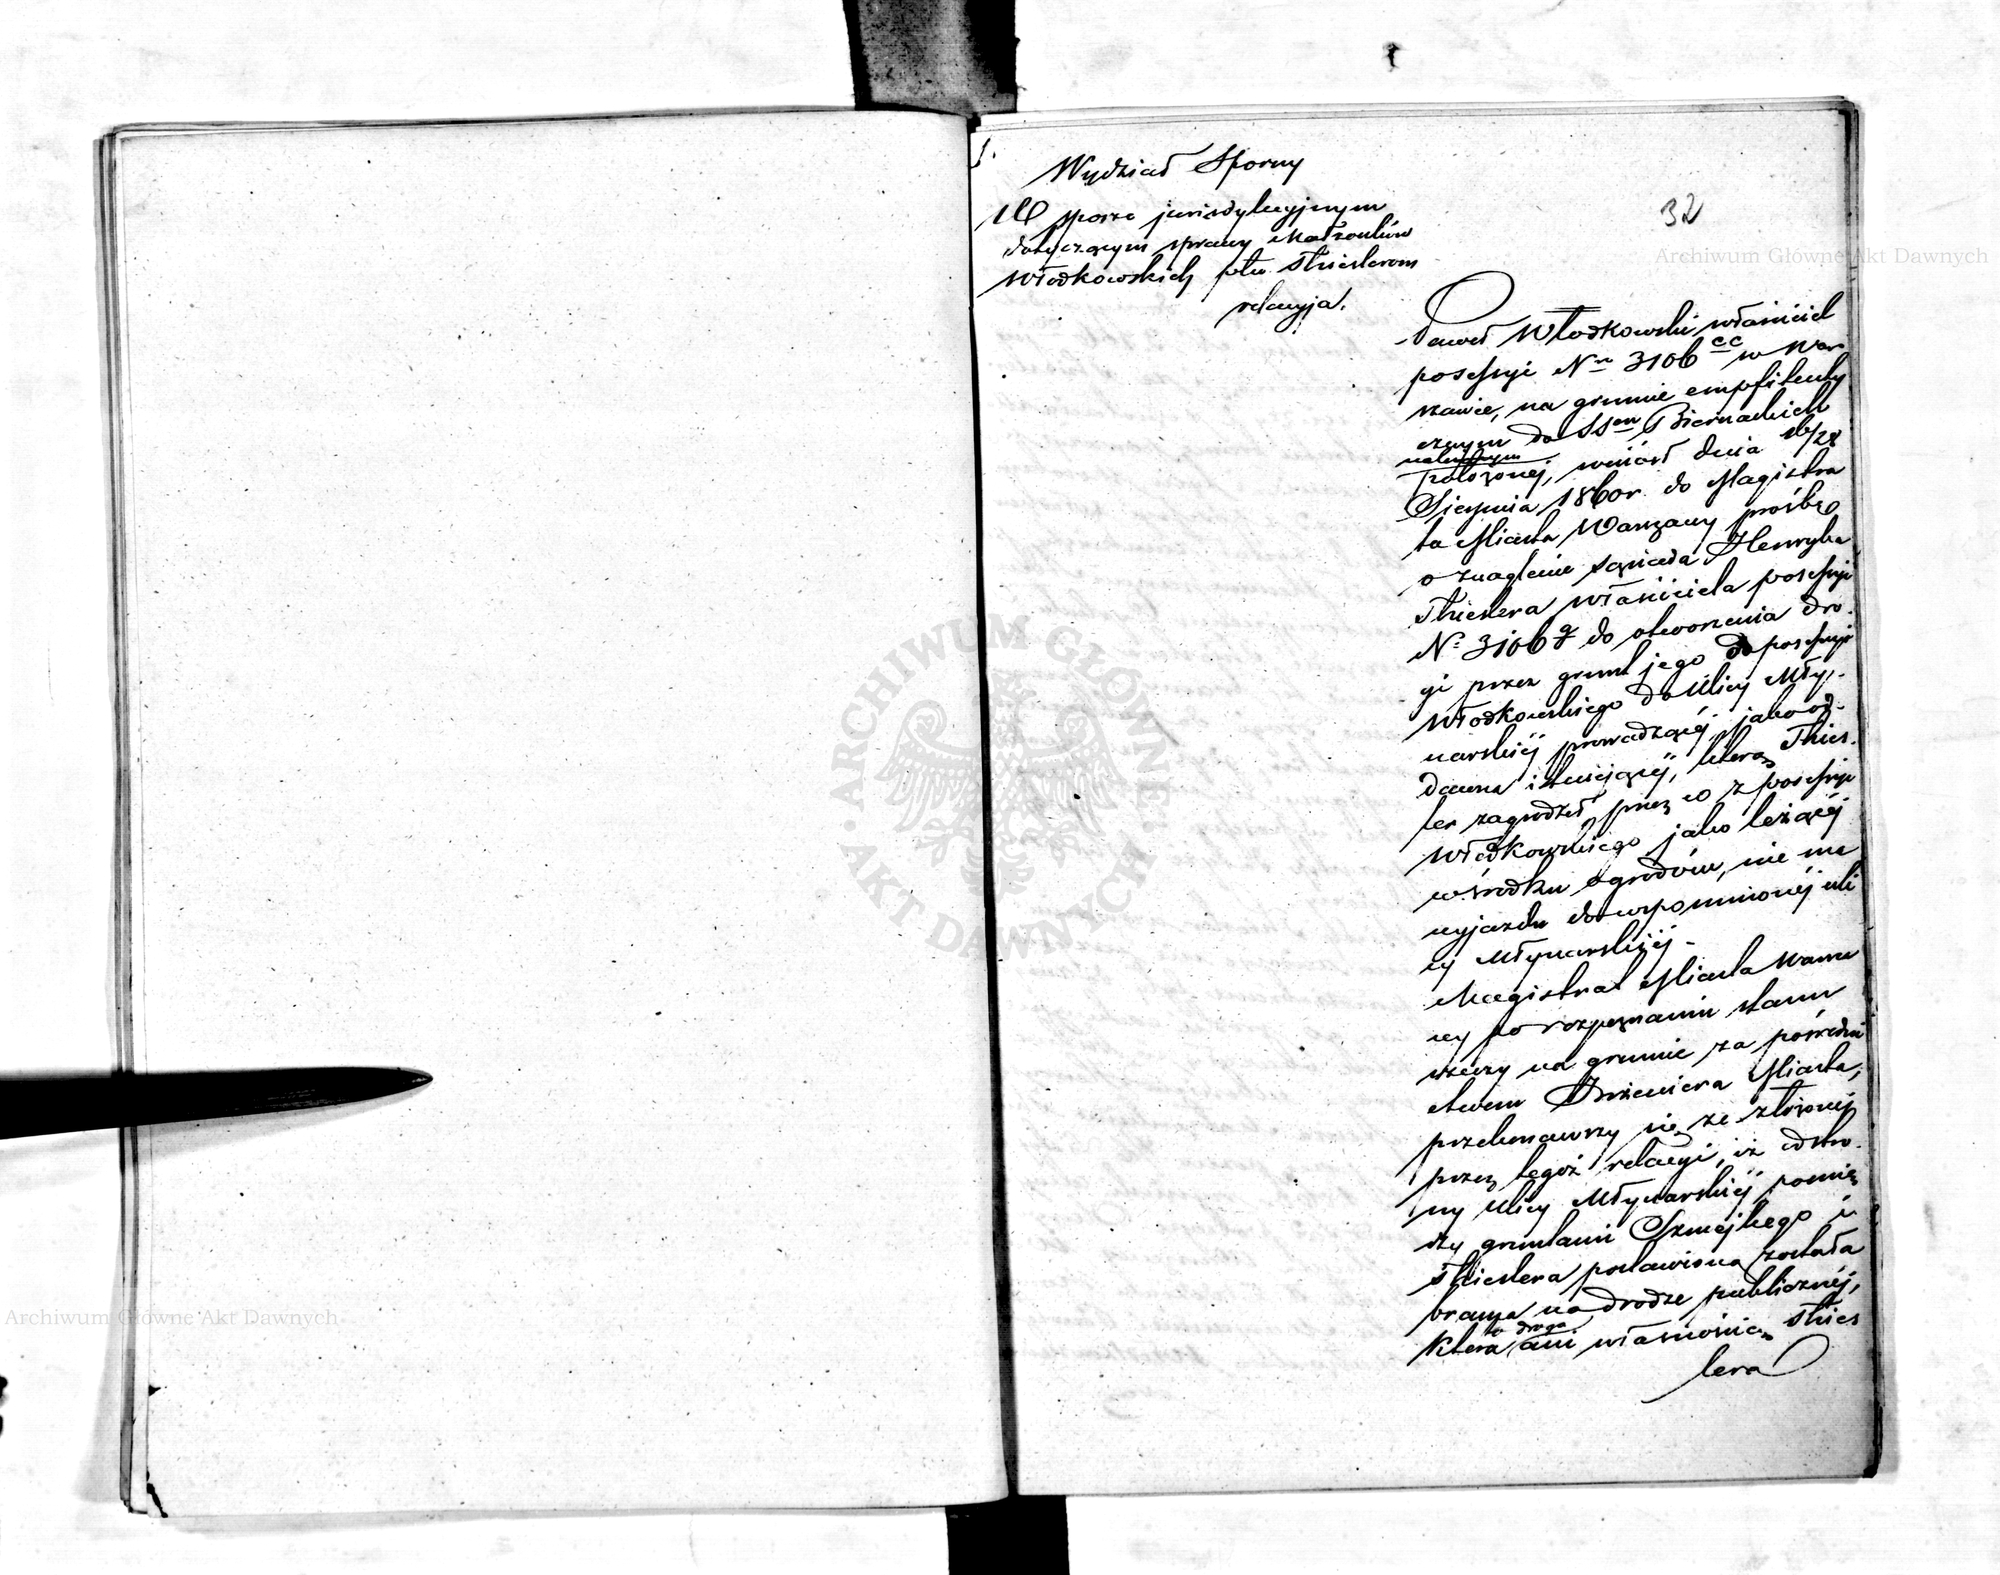 1.
Wydział Sporny
W sporze jurisdykcyjnym
dotyczącym sprawy Małżonków
Włodkowskich ptko Thieslerom
relacyja.
32
Paweł Włodkowski właściciel
posessyi Nro 3106 cc w War
szawie, na gruncie empfiteuty
cznym do SSen Biernackich
należącym
położonej, wniósł dnia 16/28
Sierpnia 1860r. do Magistra
tu Miasta Warszawy prośbę
o znaglenie sąsiada Henryka
Thieslera właściciela posessyi
No 3106 g do otworzenia dro-
gi przez grunt jego do posessyi
Włodkowskiego do Ulicy Mły-
narskiéj prowadzącéj, jako od-
dawna istniejącéj, którą Thies-
ler zagrodził, przez co z posessyi
Włodkowskiego jako leżącéj
w środku ogrodów, nie ma
wyjazdu do wspomnionéj uli
cy Młynarskiéj -
Magistrat Miasta Warsza
wy po rozpoznaniu stanu
rzeczy na gruncie za pośredni
ctwem Inżeniera Miasta,
przekonawszy się ze złożonéj
przez tegoż relacyi, iż od stro-
ny Ulicy Młynarskiéj pomię
dzy gruntami Szmejkego i
Thieslera postawioną została
brama na drodze publicznéj,
która to droga ani własnością Thies
lera
Archiwum Główne Akt Dawnych
ARCHIWUM GŁÓWNE
AKT DAWNYCH
Archiwum Główne Akt Dawnych